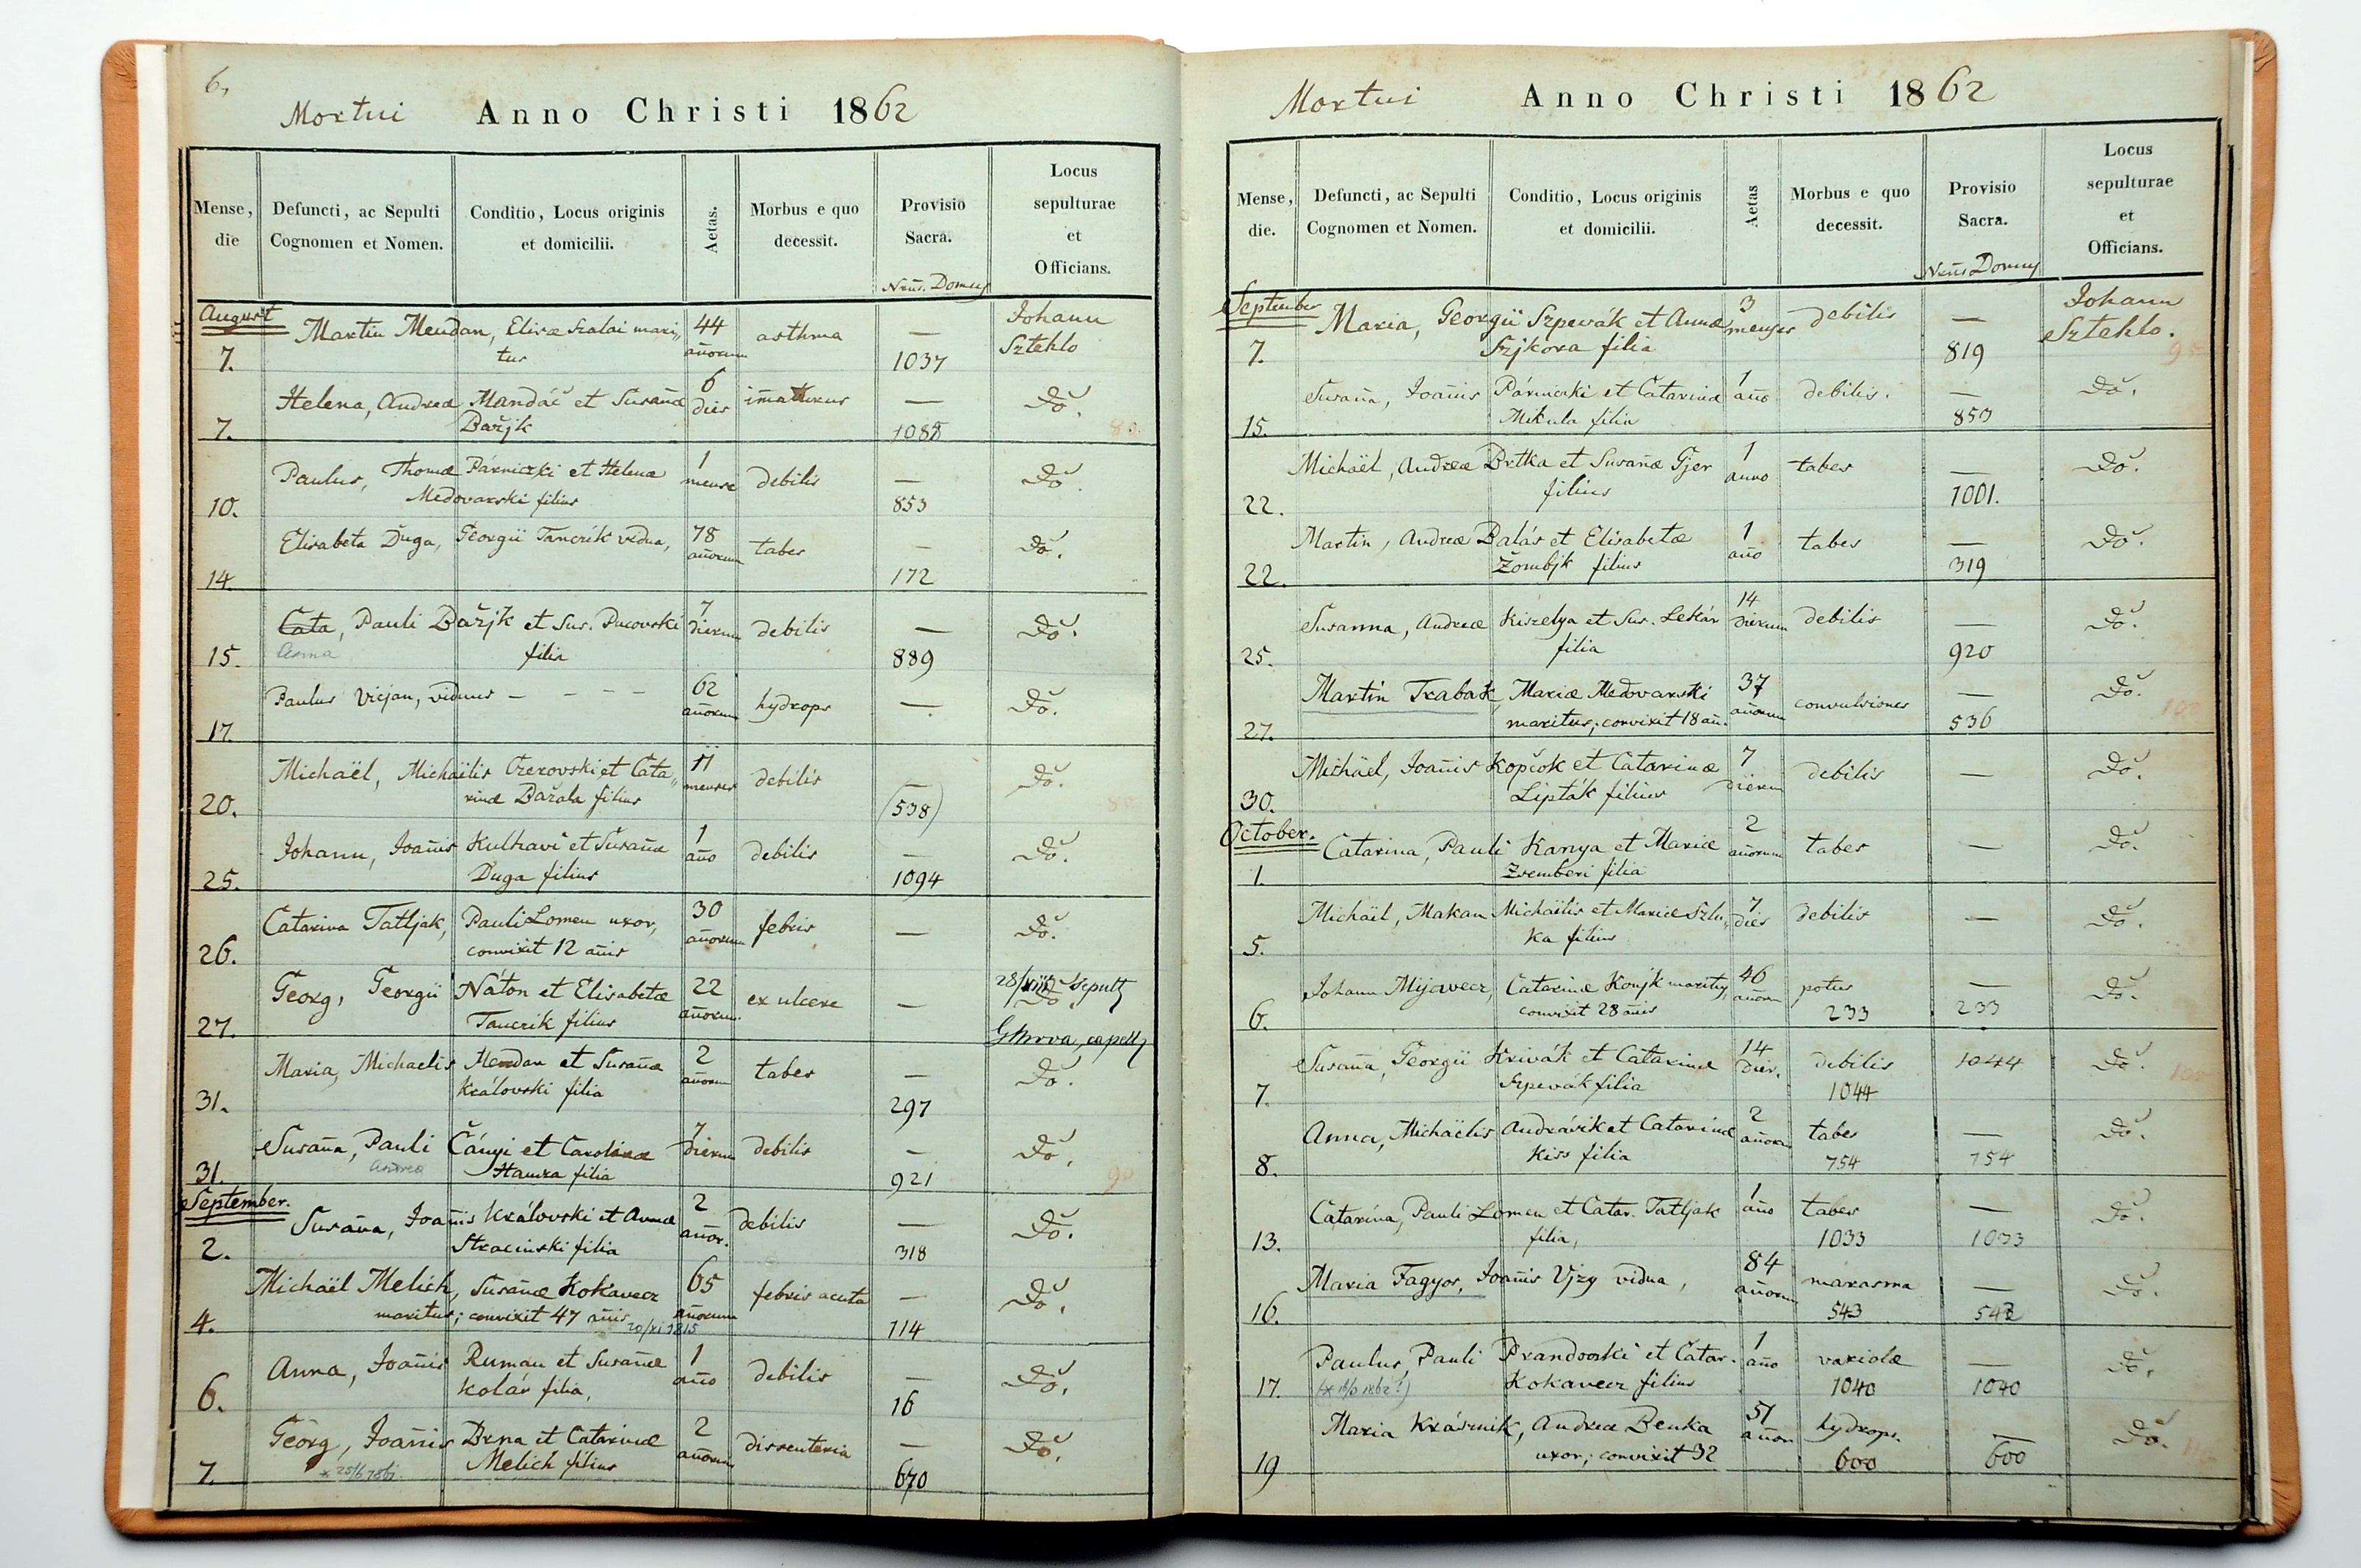 6.
Mortui Anno Christi 1862
Mense, die
Defuncti, ac Sepulti Cognomen et Nomen.
Conditio, Locus originis et domicilii.
Aetas.
Morbus e quo decessit.
Provisio Sacra.
Nrus. Domus
Locus sepulturae et Officians.
August
7. Martin Mendan, Elisæ Szalai mari„ 44 añorum asthma — Johann
tus 1037 Sztehlo
7. Helena, Andreæ Mandáč et Susañæ 6 dies imaturus — do.
Bažjk 1088
10. Paulus, Thomæ Párniczki et Helenæ 1 mense debilis — do.
Medovarski filius 853
14. Elisabeta Ďuga, Georgii Tanczik vidua, 78 añorum tabes — do.
172
15. Cata, Pauli Bažjk et Sus. Pucovski 7 dierum debilis — do.
Anna filia 889
17. Paulus Vicjan, viduus – – – – 62 añorum hydrops — do.
20. Michaël, Michaëlis Czerovski et Cata„ 11 menses debilis — do.
rinæ Bažala filius (538)
25. Johann, Joañis Kulhavi et Susañæ 1 año debilis — do.
Duga filius 1094
26. Catarina Tatljak, Pauli Lomen uxor, 30 añorum febris — do.
convixit 12 añis
27. Georg, Georgii Náton et Elisabetæ 22 añorum. ex ulcere — 28/XII Sepult
Tanczik filius do.
capell
31. Maria, Michaelis Mendan et Susañæ 2 añorum tabes — do.
Královski filia 297
31. Susaña, Pauli Čányi et Carolinæ 7 dierum debilis — do.
Andrea Hamza filia 921 90
September.
2. Susaña, Joañis Královski et Annæ 2 añor. debilis — do.
Stracinski filia 318
4. Michaël Melich, Susañæ Kokavecz 65 añorum febris acuta — do.
maritus; convixit 47 añis 20/XI 1815 114
6. Anna, Joañis Ruman et Susañæ 1 año debilis — do.
Kolár filia, 16
7. Georg, Joañis Brna et Catarinæ 2 añorum dissenteria — do.
Melich filius 670
Mortui Anno Christi 1862
Mense, die.
Defuncti, ac Sepulti Cognomen et Nomen.
Conditio, Locus originis et domicilii.
Aetas
Morbus e quo decessit.
Provisio Sacra.
Nrus Domus
Locus sepulturae et Officians.
September
7. Maria, Georgii Szpevák et Annæ 3 menses debilis — Johann
Szjkora filia 819 Sztehlo.
15. Susaña, Joañis Párniczki et Catarinæ 1 año debilis. — do.
Mikula filia 853
22. Michaël, Andreæ Brtka et Susañæ Gjer 1 anno tabes — do.
filius 1001.
22. Martin, Andreæ Balás et Elisabetæ 1 año tabes — do.
Žombjk filius 319
25. Susanna, Andreæ Kiszelya et Sus. Lekár 14 dierum debilis — do.
filia 920
27. Martin Trabak, Mariæ Medovarski 37 añorum convulsiones — do.
maritus; convixit 18 añ. 536 100
30. Michäel, Joañis Kopčok et Catarinæ 7 dierum debilis — do.
Lipták filius
October.
1. Catarina, Pauli Kanya et Mariæ 2 añorum tabes — do.
Zvemberi filia
5. Michäel, Makan Michaëlis et Mariæ Szlu„ 7 dies debilis — do.
ka filius
6. Johann Mijavecz, Catarinæ Konjk maritus, 46 añorum potus — do.
convixit 28 añis 233 233
7. Susaña, Georgii Krivák et Catarinæ 14 dier. debilis 1044 do.
Szpevák filia 1044
8. Anna, Michaëlis Andrásik et Catarinæ 2 añorum tabes — do.
Kiss filia 754 754
13. Catarina, Pauli Lomen et Catar. Tatljak 1 año tabes — do.
filia, 1033 1033
16. Maria Fagyos, Joañis Vjzy vidua, 84 añorum marasma — do.
543 543
17. Paulus, Pauli Prandovski et Catar. 1 año variolæ — do.
Kokavecz filius 1040 1040
19 Maria Krásznik, Andreæ Benka 51 añor hydrops. — do.
uxor; convixit 32 600 600